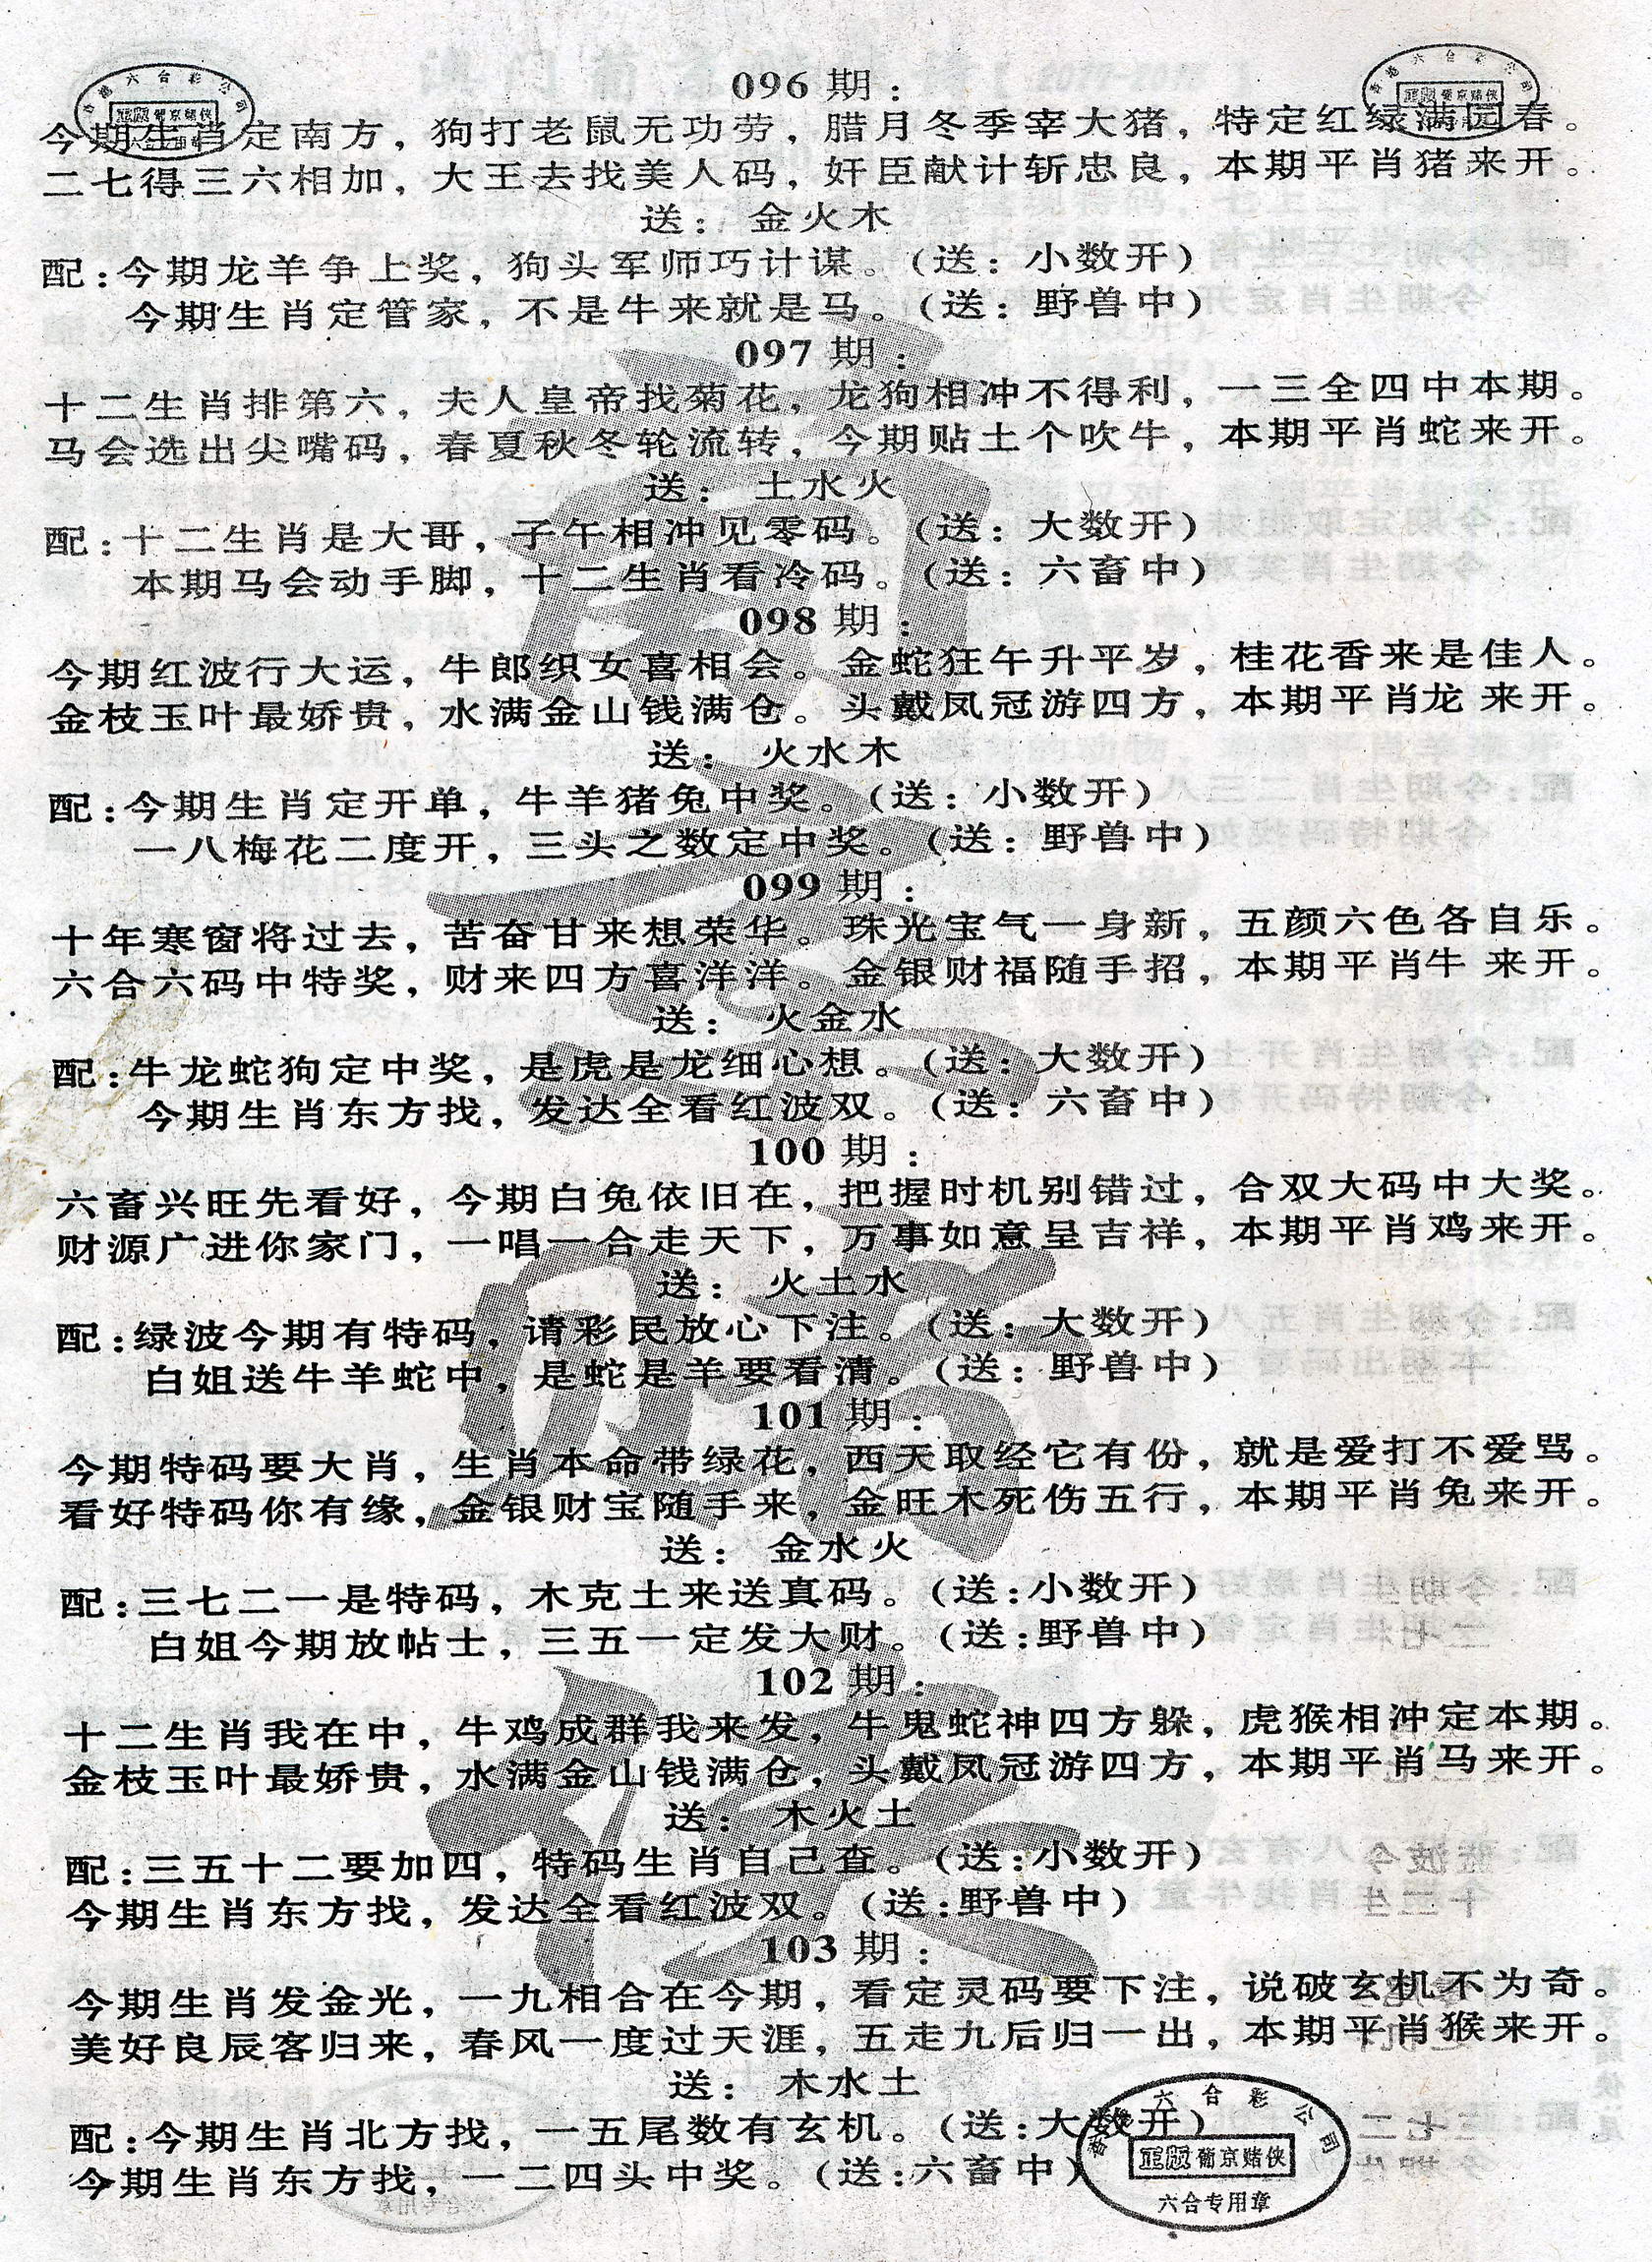 096期：
今期生肖定南方，狗打老鼠无功劳，腊月冬季宰大猪，特定红绿满园春。
二七得三六相加，大王去找美人码，奸臣献计斩忠良，本期平肖猪来开。
送：金火木
配：今期龙羊争上奖，狗头军师巧计谋。（送：小数开）
今期生肖定管家，不是牛来就是马。（送：野兽中）
097期：
十二生肖排第六，夫人皇帝找菊花，龙狗相冲不得利，一三全四中本期。
马会选出尖嘴码，春夏秋冬轮流转，今期贴士个吹牛，本期平肖蛇来开。
送：土水火
配：十二生肖是大哥，子午相冲见零码。（送：大数开）
本期马会动手脚，十二生肖看冷码。（送：六畜中）
098期：
今期红波行大运，牛郎织女喜相会。金蛇狂午升平岁，桂花香来是佳人。
金枝玉叶最娇贵，水满金山钱满仓。头戴凤冠游四方，本期平肖龙来开。
送：火水木
配：今期生肖定开单，牛羊猪兔中奖。（送：小数开）
一八梅花二度开，三头之数定中奖。（送：野兽中）
099期：
十年寒窗将过去，苦奋甘来想荣华。珠光宝气一身新，五颜六色各自乐。
六合六码中特奖，财来四方喜洋洋。金银财福随手招，本期平肖牛来开。
送：火金水
配：牛龙蛇狗定中奖，是虎是龙细心想。（送：大数开）
今期生肖东方找，发达全看红波双。（送：六畜中）
100期：
六畜兴旺先看好，今期白兔依旧在，把握时机别错过，合双大码中大奖。
财源广进你家门，一唱一合走天下，万事如意呈吉祥，本期平肖鸡来开。
送：火土水
配：绿波今期有特码，请彩民放心下注。（送：大数开）
白姐送牛羊蛇中，是蛇是羊要看清。（送：野兽中）
101期：
今期特码要大肖，生肖本命带绿花，西天取经它有份，就是爱打不爱骂。
看好特码你有缘，金银财宝随手来，金旺木死伤五行，本期平肖兔来开。
送：金水火
配：三七二一是特码，木克土来送真码。（送：小数开）
白姐今期放帖士，三五一定发大财。（送：野兽中）
102期：
十二生肖我在中，牛鸡成群我来发，牛鬼蛇神四方躲，虎猴相冲定本期。
金枝玉叶最娇贵，水满金山钱满仓，头戴凤冠游四方，本期平肖马来开。
送：木火土
配：三五十二要加四，特码生肖自己查。（送：小数开）
今期生肖东方找，发达全看红波双。（送：野兽中）
103期：
今期生肖发金光，一九相合在今期，看定灵码要下注，说破玄机不为奇。
美好良辰客归来，春风一度过天涯，五走九后归一出，本期平肖猴来开。
送：木水土
配：今期生肖北方找，一五尾数有玄机。（送：大数开）
今期生肖东方找，一二四头中奖。（送：六畜中）
香港六合彩公司
正版葡京赌侠
六合专用章